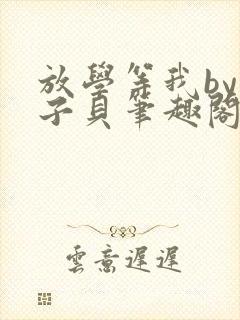 放學等我by
子貝筆趣閣
雲意遲遲